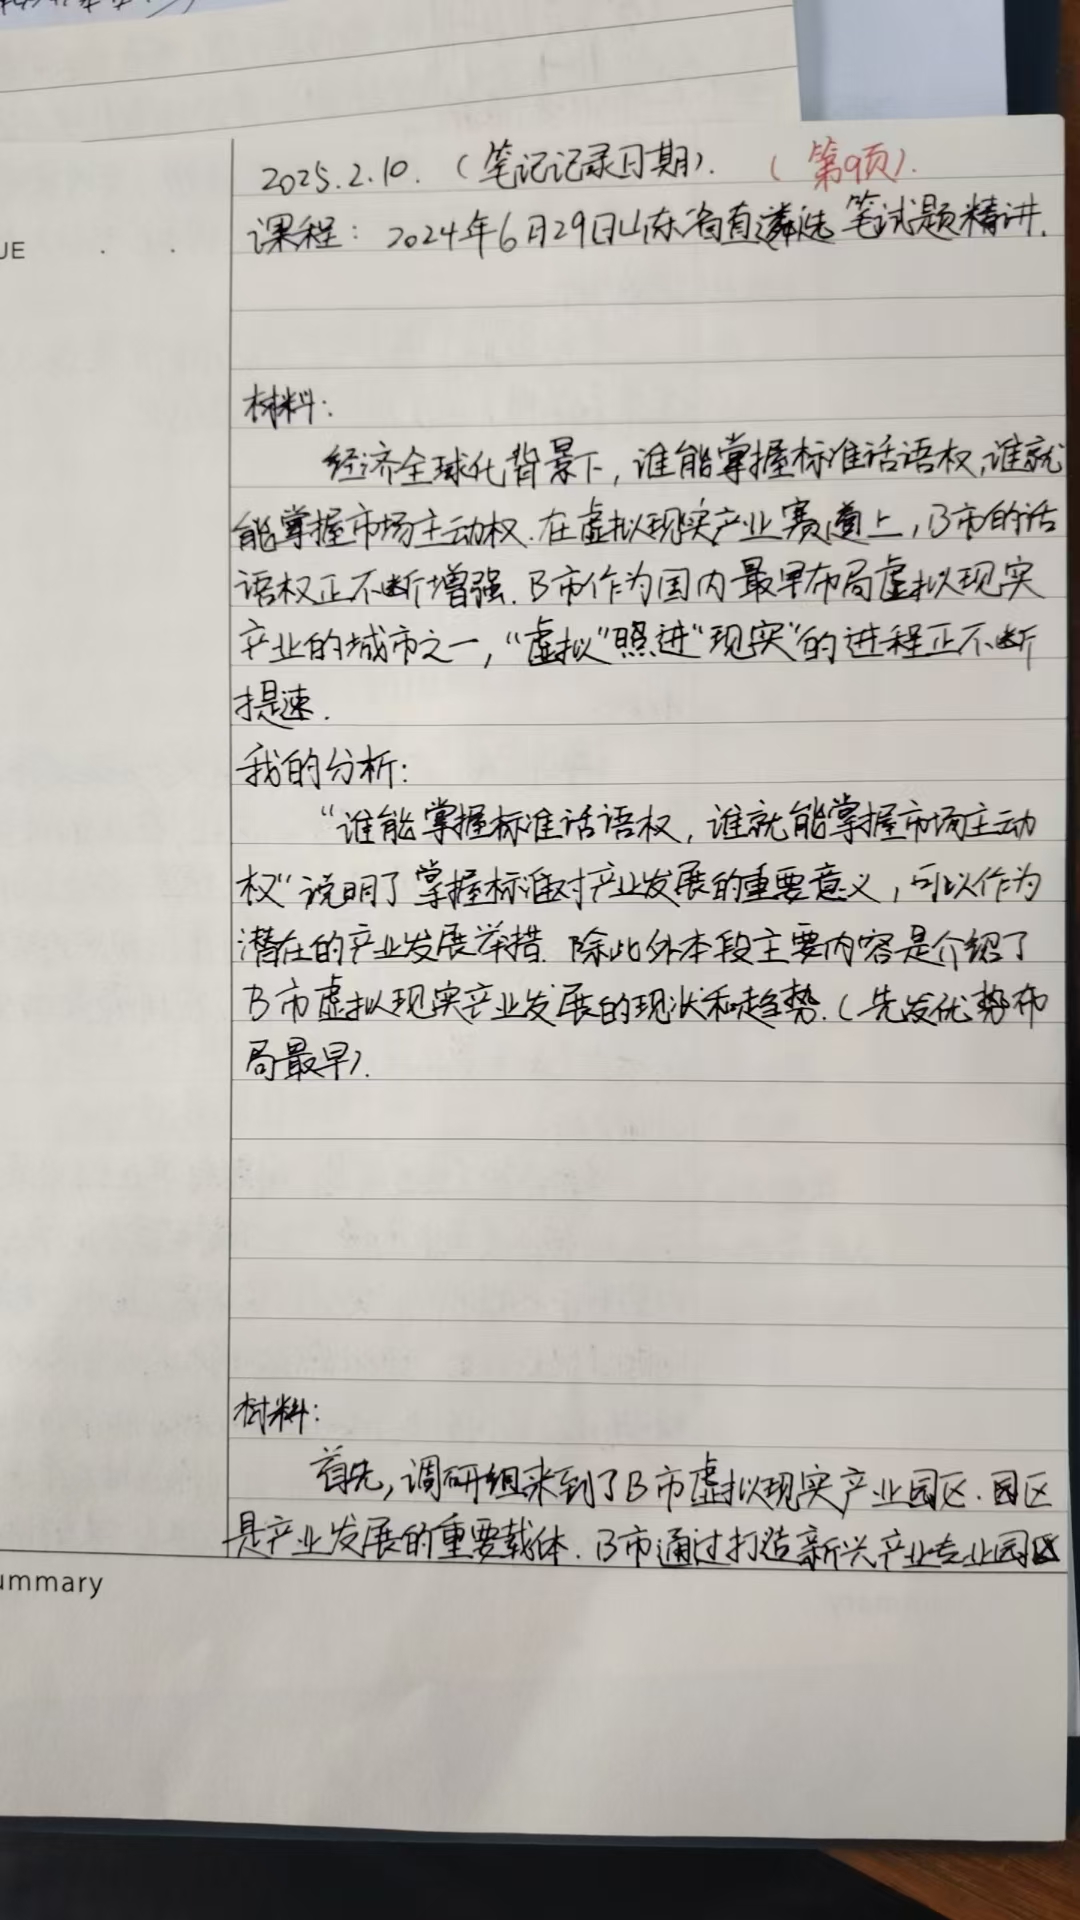 2025.2.10.（笔记记录日期）.（第9页）.
课程：2024年6月29日山东省直遴选笔试题精讲.
UE
材料：
经济全球化背景下，谁能掌握标准话语权，谁就
能掌握市场主动权.在虚拟现实产业赛道上，B市的话
语权正不断增强.B市作为国内最早布局虚拟现实
产业的城市之一，“虚拟”照进“现实”的进程正不断
提速.
我的分析：
“谁能掌握标准话语权，谁就能掌握市场主动
权”说明了掌握标准对产业发展的重要意义，可以作为
潜在的产业发展举措.除此外本段主要内容是介绍了
B市虚拟现实产业发展的现状和趋势.（先发优势布
局最早）.
材料：
首先，调研组来到了B市虚拟现实产业园区.园区
是产业发展的重要载体.B市通过打造新兴产业专业园区
ummary